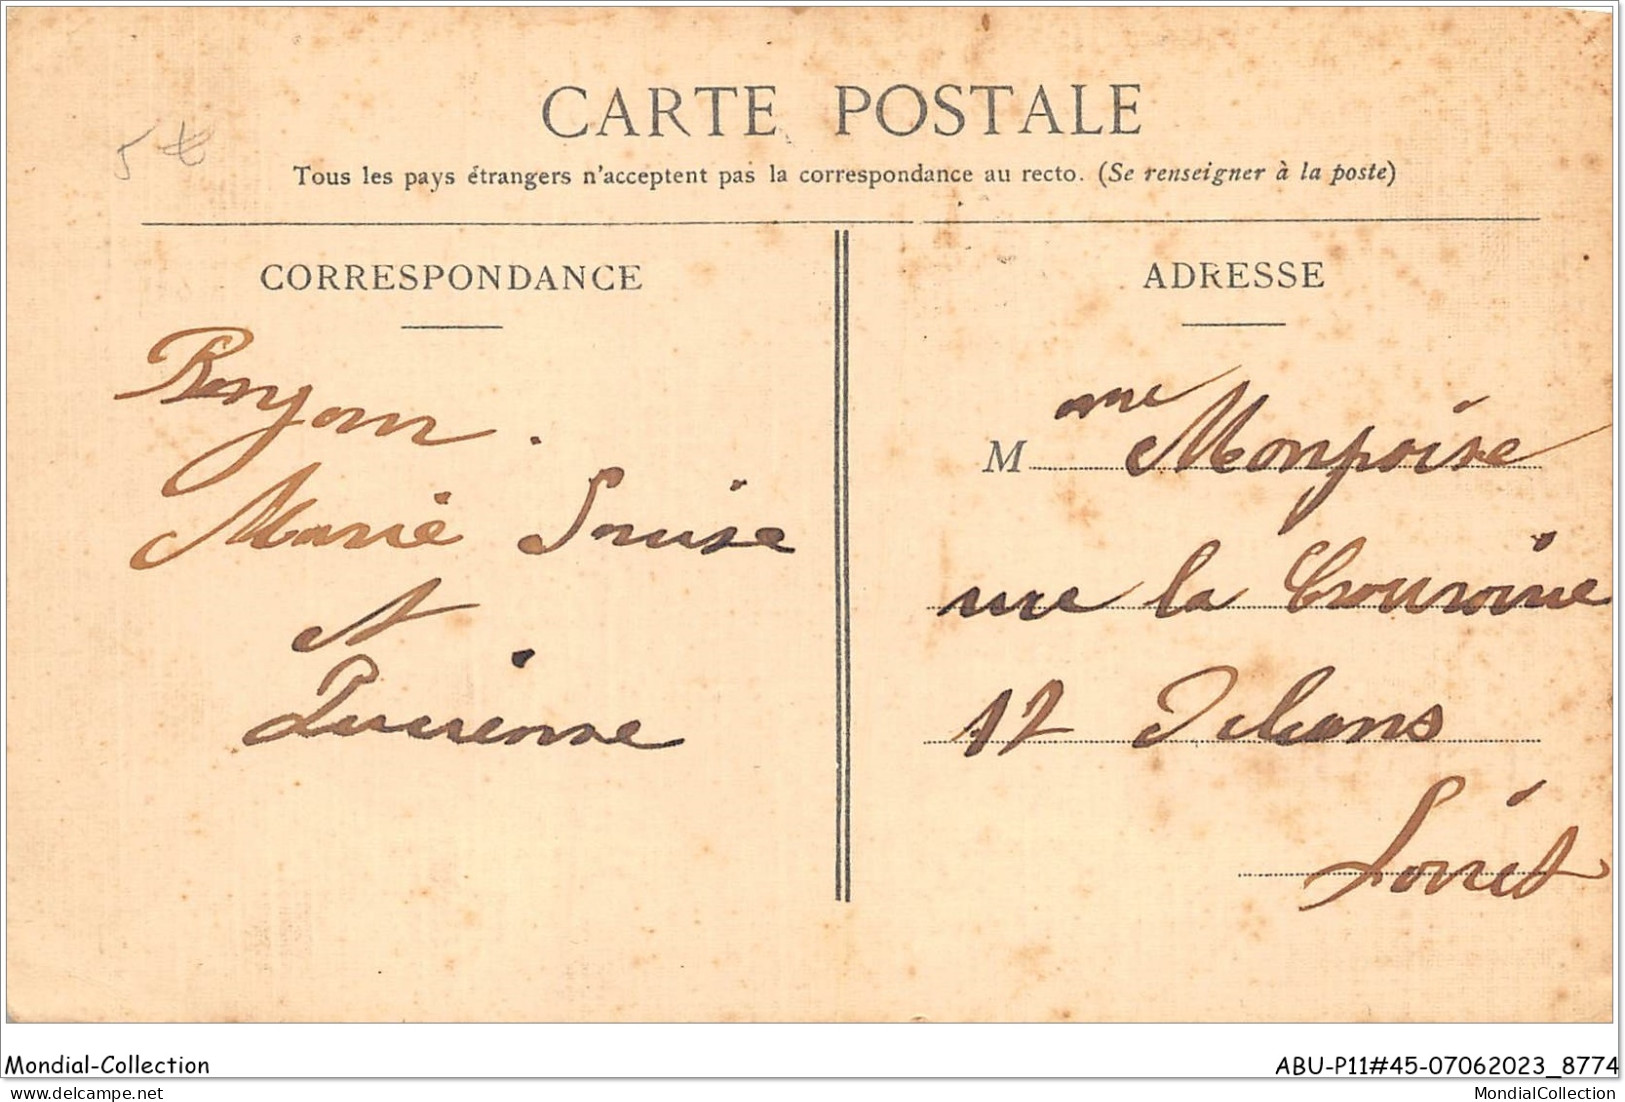 CARTE POSTALE
Tous les pays étrangers n'acceptent pas la correspondance au recto. (Se renseigner à la poste)
5 €
CORRESPONDANCE
Marie Louise
et
Lucienne
ADRESSE
M me Monpoise
rue la
17 Orleans
Loiret
Mondial-Collection
ABU-P11#45-07062023_8774
MondialCollection